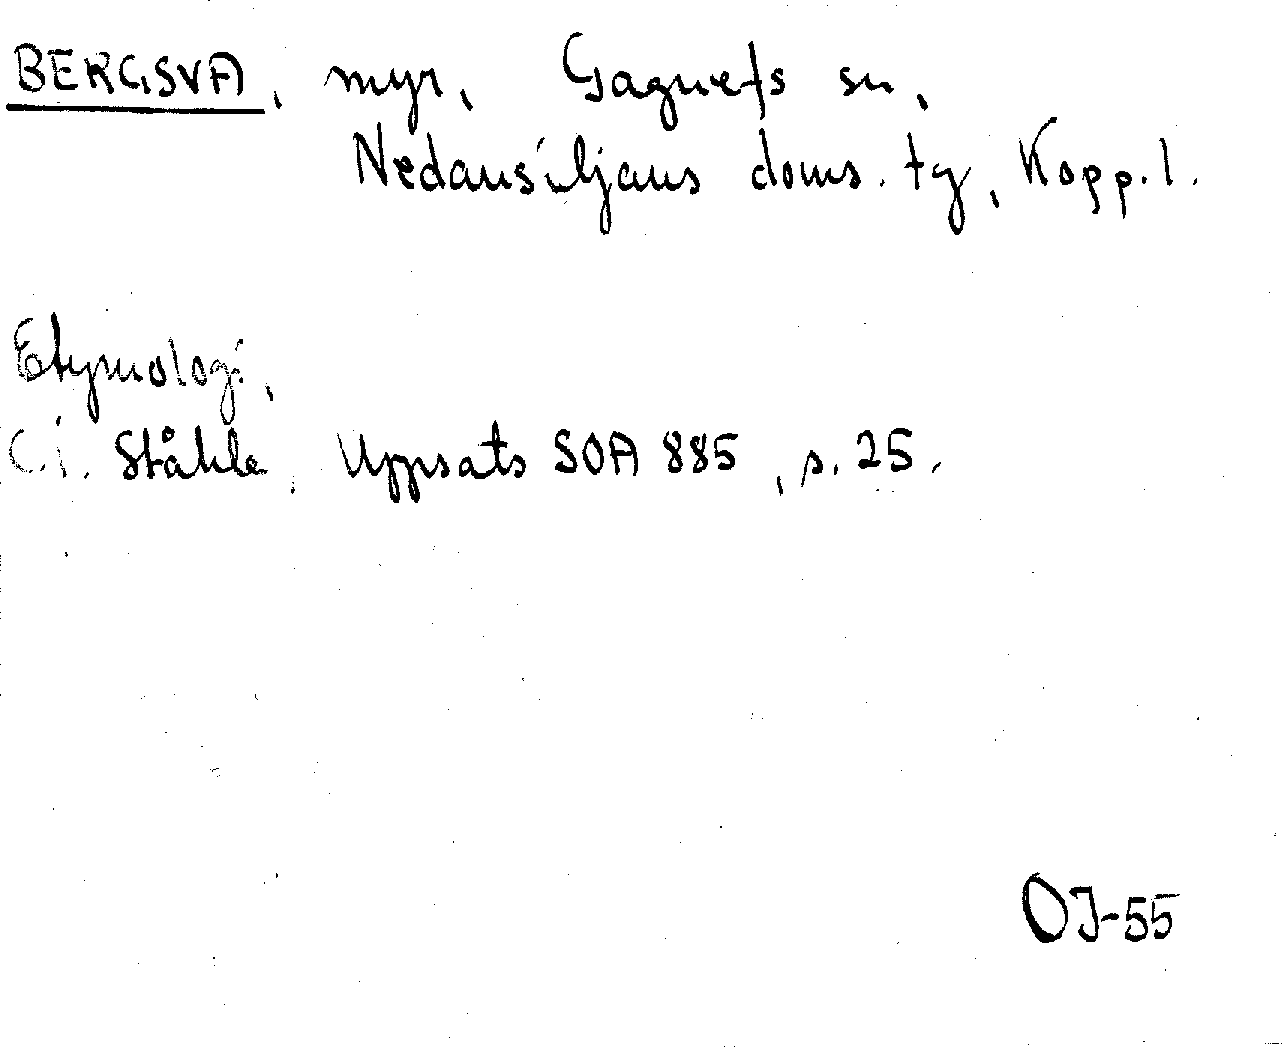 BERGSVA, myr, Gagnefs sn,
Nedansiljans doms. tg, Kopp. l.
Etymologi,
C. I. Ståhle, Uppsats SOA 885, s. 25.
OJ-55